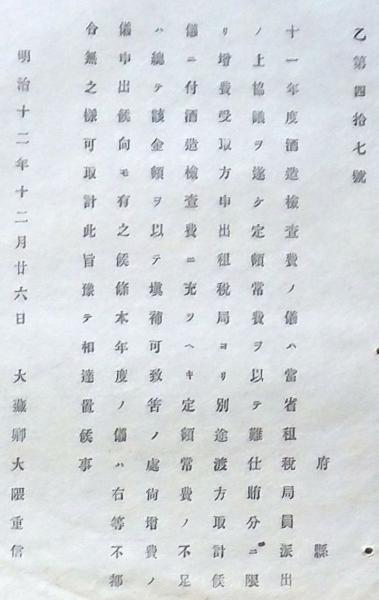 乙第四拾七號
府縣
十一年度酒造檢查費ノ儀ハ當省租税局員派出
ノ上協議ヲ遂ケ定額常費ヲ以テ難仕賄分ニ限
リ增費受取方申出租税局ヨリ別途渡方取計候
儀ニ付酒造檢查費ニ充ツヘキ定額常費ノ不足
ハ總テ該金額ヲ以テ塡補可致筈ノ處尙增費ノ
儀申出候向モ有之候條本年度ノ儀ハ右等不都
合無之樣可取計此旨豫テ相達置候事
明治十二年十二月廿六日 大藏卿大隈重信